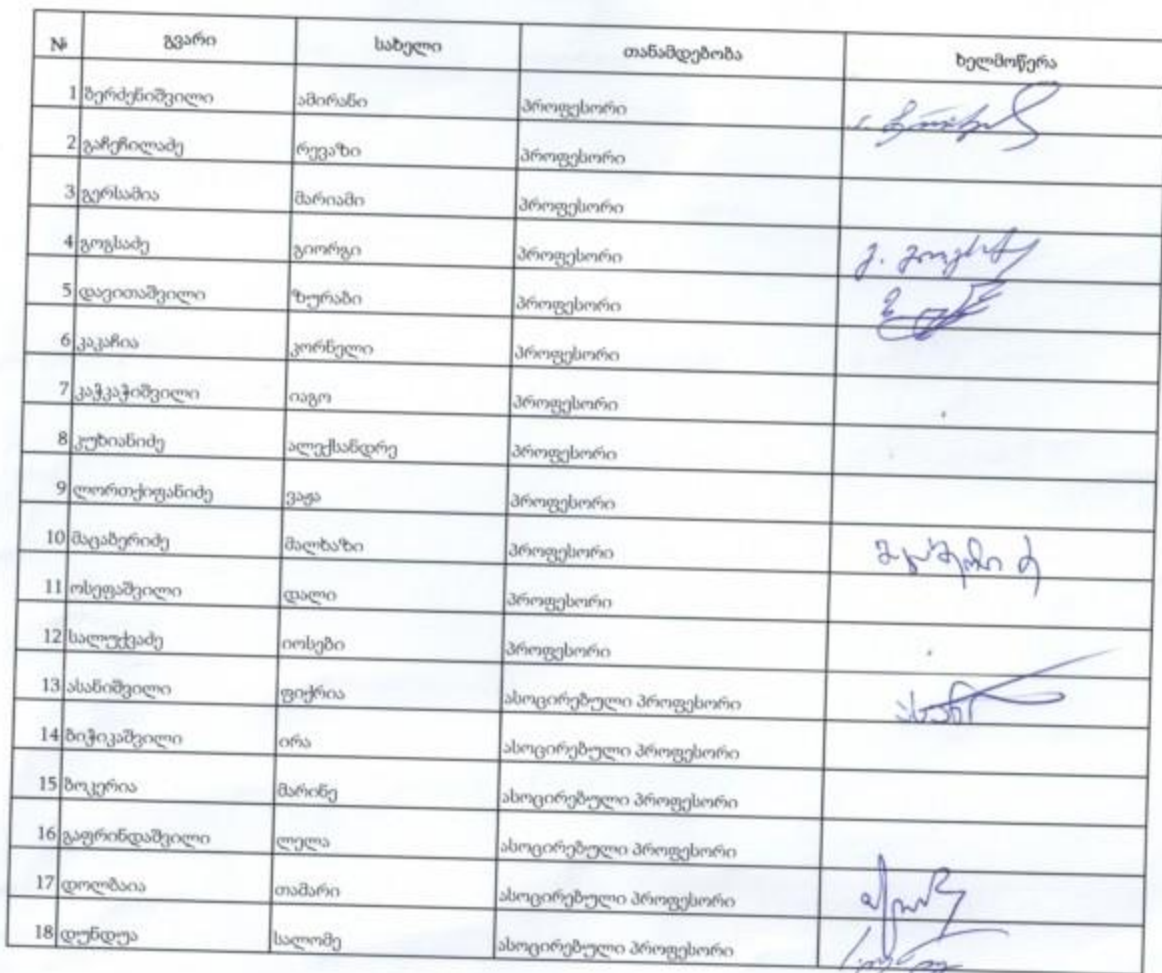 № გვარი სახელი თანამდებობა ხელმოწერა
1 ბერძენიშვილი ამირანი პროფესორი
2 გაჩეჩილაძე რევაზი პროფესორი
3 გერსამია მარიამი პროფესორი
4 გოგსაძე გიორგი პროფესორი გ. გოგსაძე
5 დავითაშვილი ზურაბი პროფესორი
6 კაკაჩია კორნელი პროფესორი
7 კაჭკაჭიშვილი იაგო პროფესორი
8 კუხიანიძე ალექსანდრე პროფესორი
9 ლორთქიფანიძე ვაჟა პროფესორი
10 მაცაბერიძე მალხაზი პროფესორი
11 ოსეფაშვილი დალი პროფესორი
12 სალუქვაძე იოსებ­ი პროფესორი
13 ასანიშვილი ფიქრია ასოცირებული პროფესორი
14 ბიჭიკაშვილი ირა ასოცირებული პროფესორი
15 ბოკერია მარინე ასოცირებული პროფესორი
16 გაფრინდაშვილი ლელა ასოცირებული პროფესორი
17 დოლბაია თამარი ასოცირებული პროფესორი
18 დუნდუა სალომე ასოცირებული პროფესორი